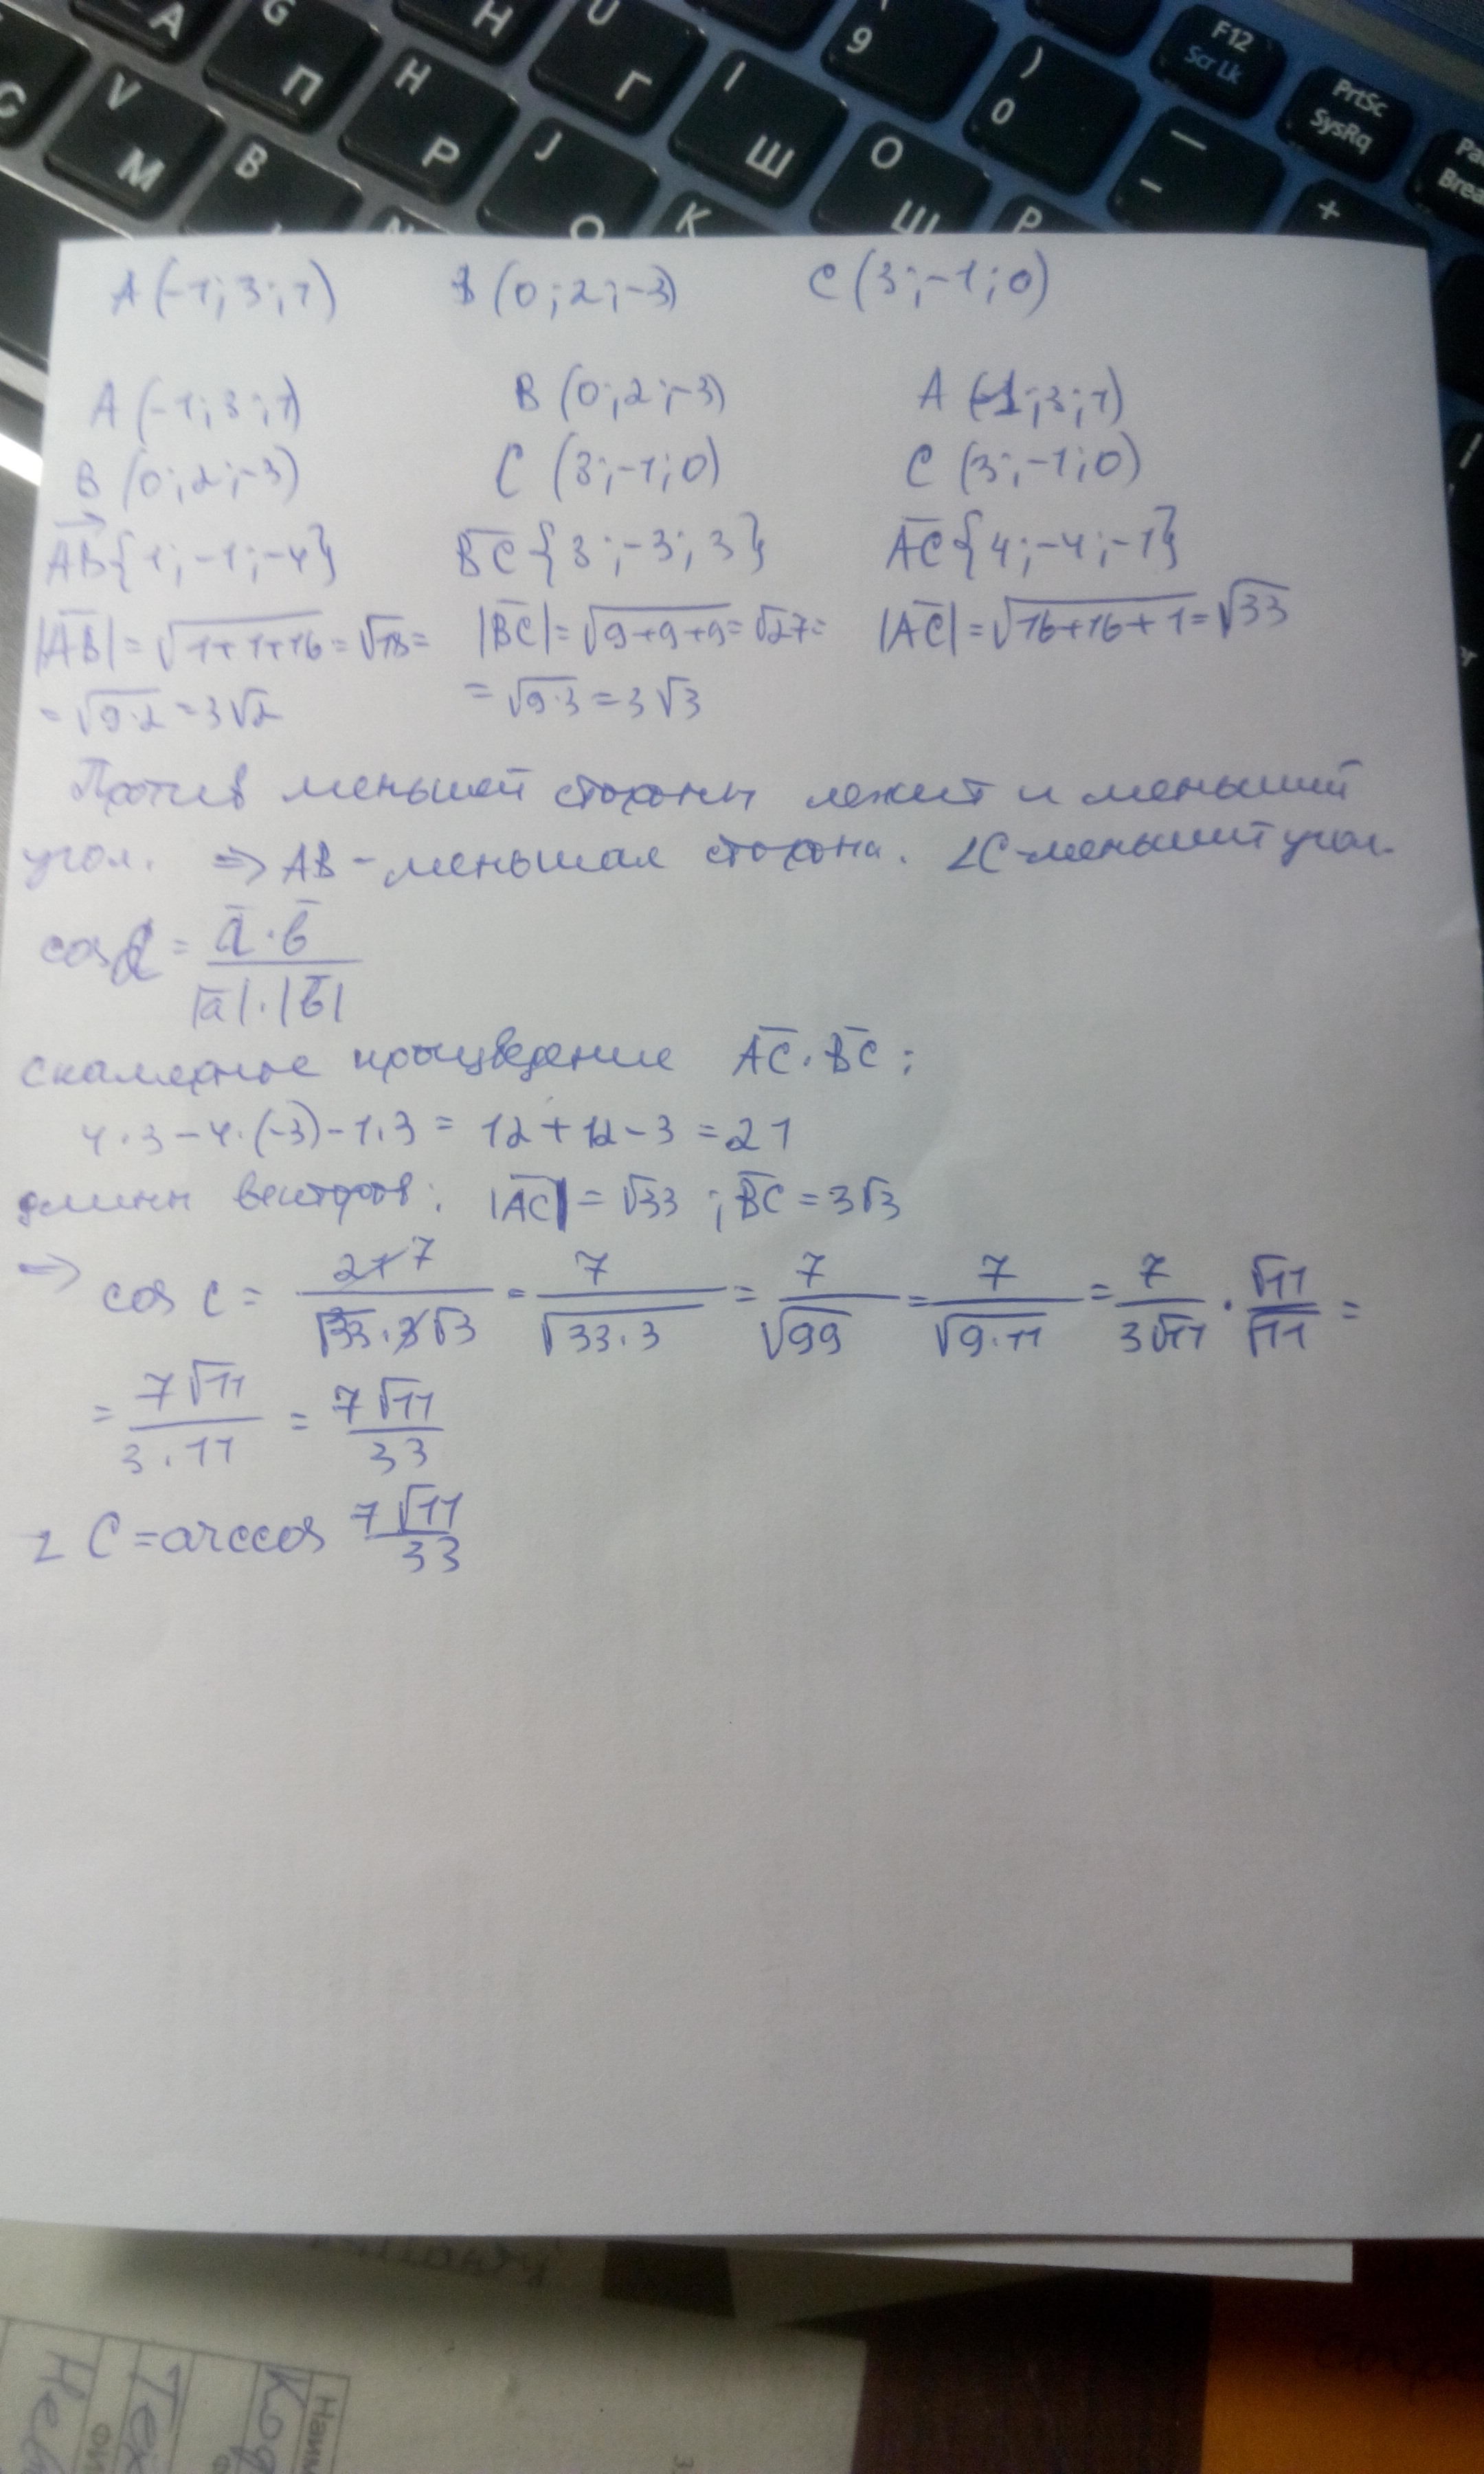 A G H U 9 F12
Scr Lk
V П Н Г I ) 0 PrtSc
SysRq
М B Р J Ш O — -
K Щ P +
A (-1; 3; 1) B (0; 2; -3) C (3; -1; 0)
A (-1; 3; 1) B (0; 2; -3) A (-1; 3; 1)
B (0; 2; -3) C (3; -1; 0) C (3; -1; 0)
AB {1; -1; -4} BC {3; -3; 3} AC {4; -4; -1}
|AB| = √1+1+16 = √18 = |BC| = √9+9+9 = √27 = |AC| = √16+16+1 = √33
= √9·2 = 3√2 = √9·3 = 3√3
Против меньшей стороны лежит и меньший
угол. ⇒ AB - меньшая сторона. ∠C - меньший угол.
cos α = a · b / |a| · |b|
скалярное произведение AC · BC :
4·3 - 4·(-3) - 1·3 = 12 + 12 - 3 = 21
длины векторов: |AC| = √33 ; BC = 3√3
⇒ cos C = 21 7 / √33 · 3√3 = 7 / √33·3 = 7 / √99 = 7 / √9·11 = 7 / 3√11 · √11 / √11 =
= 7√11 / 3·11 = 7√11 / 33
∠ C = arccos 7√11 / 33
Код
Тех